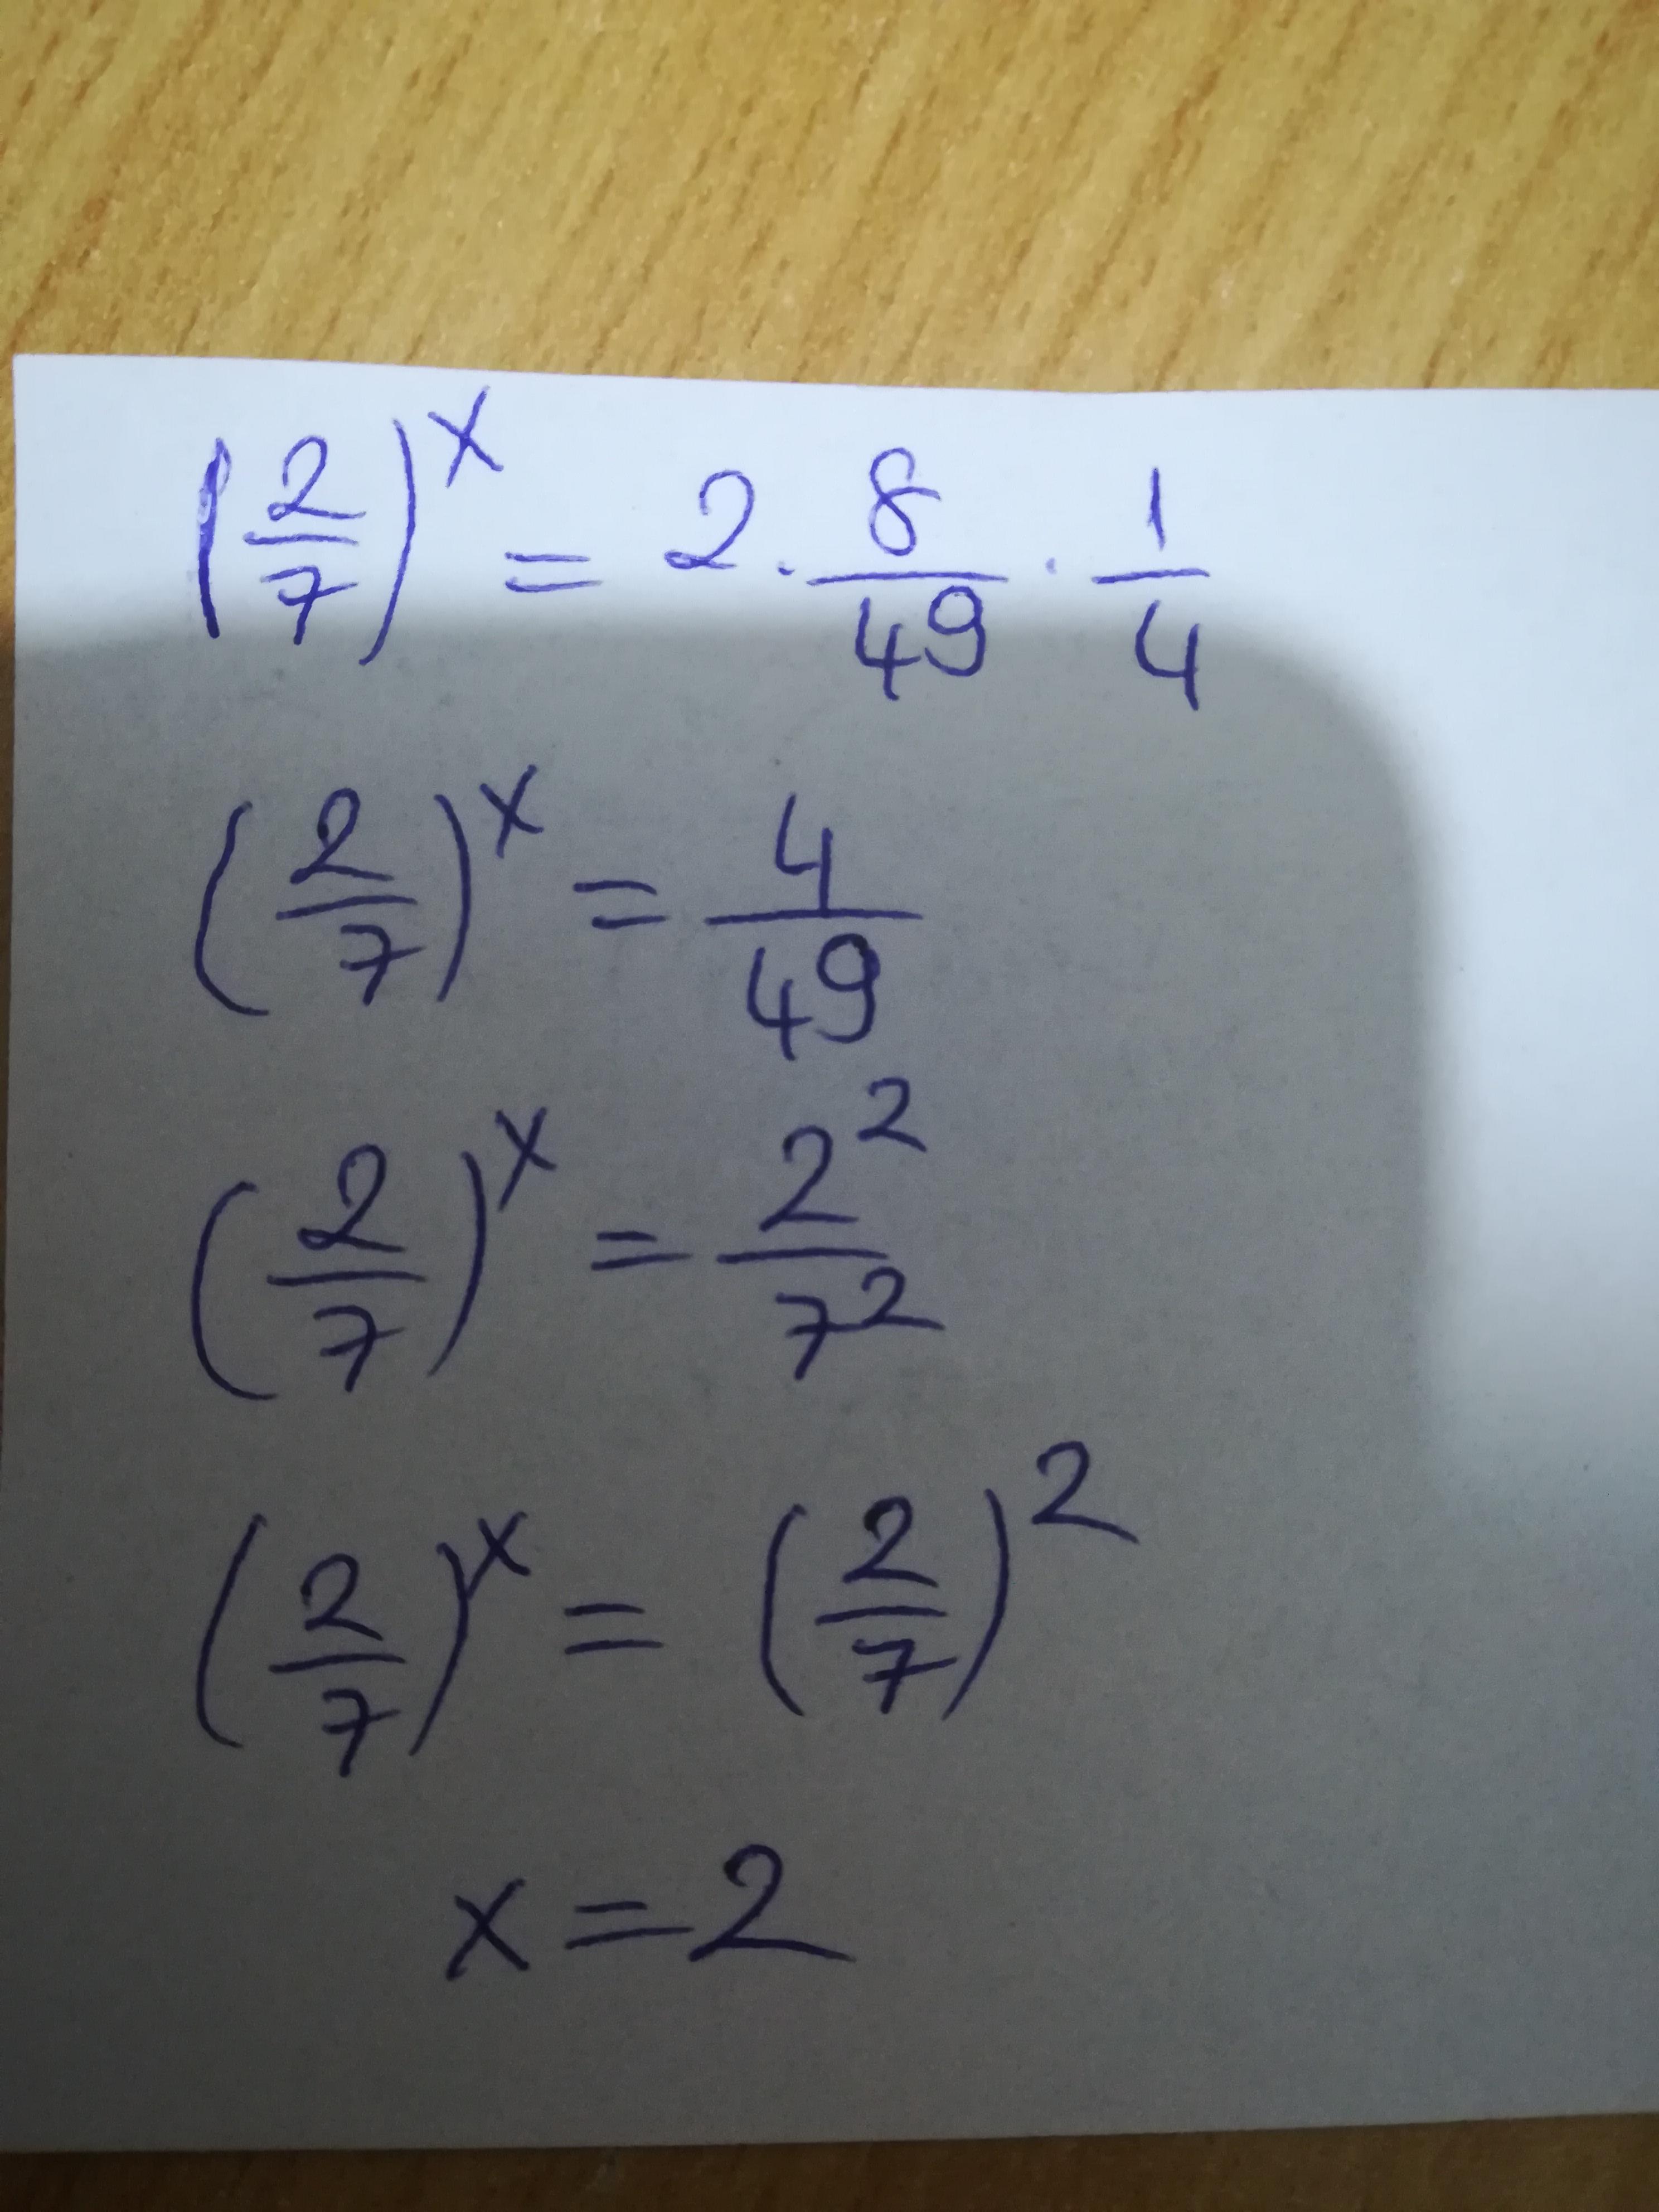 (2/7)^x = 2 · 8/49 · 1/4
(2/7)^x = 4/49
(2/7)^x = 2^2/7^2
(2/7)^x = (2/7)^2
x = 2